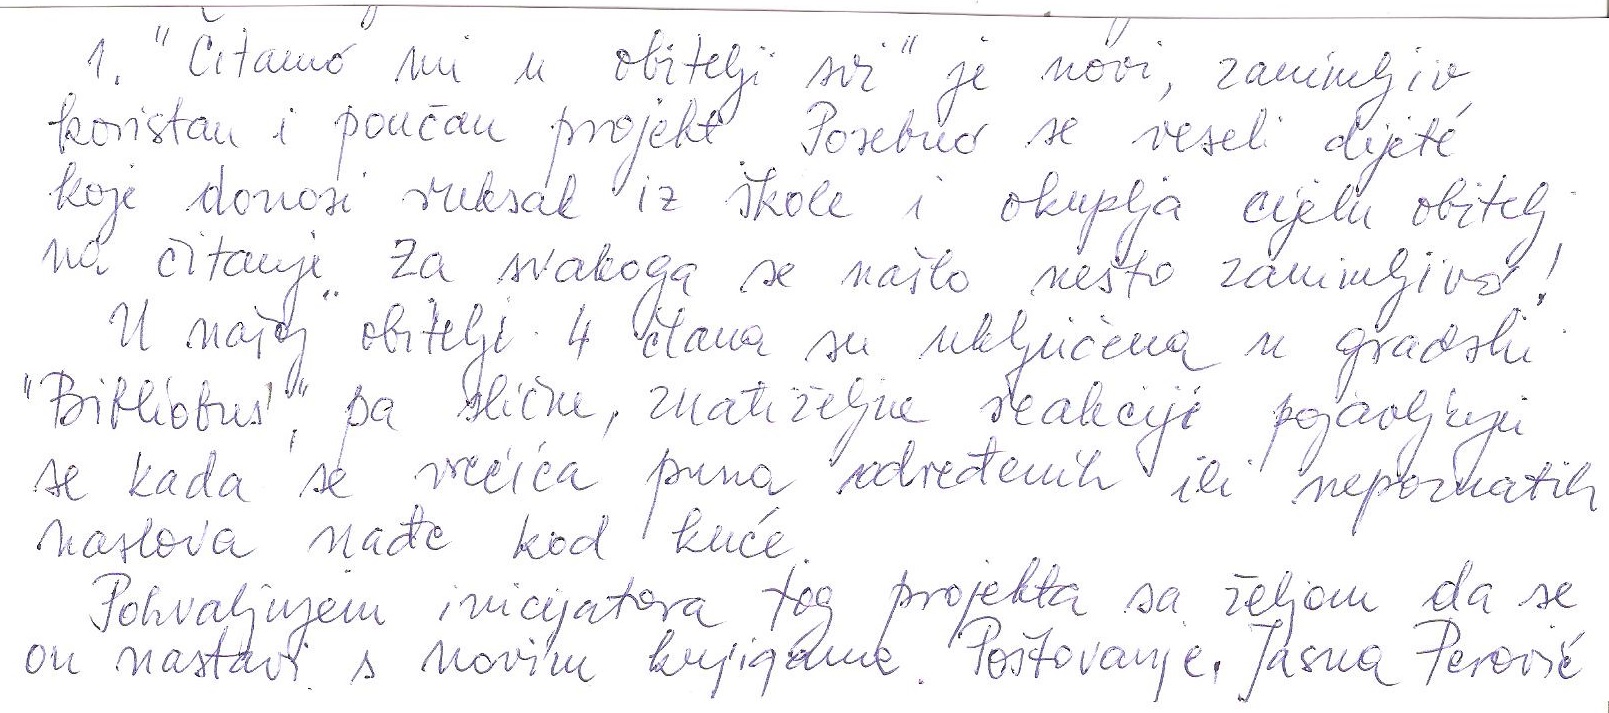 1. "Čitamo mi u obitelji svi" je novi, zanimljiv
koristan i poučan projekt Posebno se veseli dijete
koje donosi ruksak iz škole i okuplja cijelu obitelj
na čitanje. Za svakoga se našlo nešto zanimljivo!
U našoj obitelji 4 člana su uključena u gradski
"Bibliobus", pa slične, znatiželjne reakcije pojavljuju
se kada se vrećica puna određenih ili nepoznatih
naslova nađe kod kuće.
Pohvaljujem inicijatora tog projekta sa željom da se
on nastavi s novim knjigama. Poštovanje. Jasna Perović